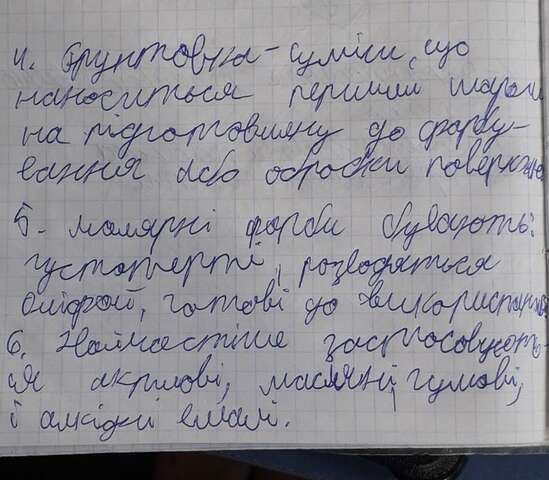 4. Ґрунтовка - суміш, що
наноситься першим шаром
на підготовлену до фарбу-
вання або обробки поверхню
5. Малярні фарби бувають:
густотерті, розводяться
оліфой, готові до використання
6. Найчастіше застосовують-
ся акрилові, масляні, гумові,
і алкідні емалі.